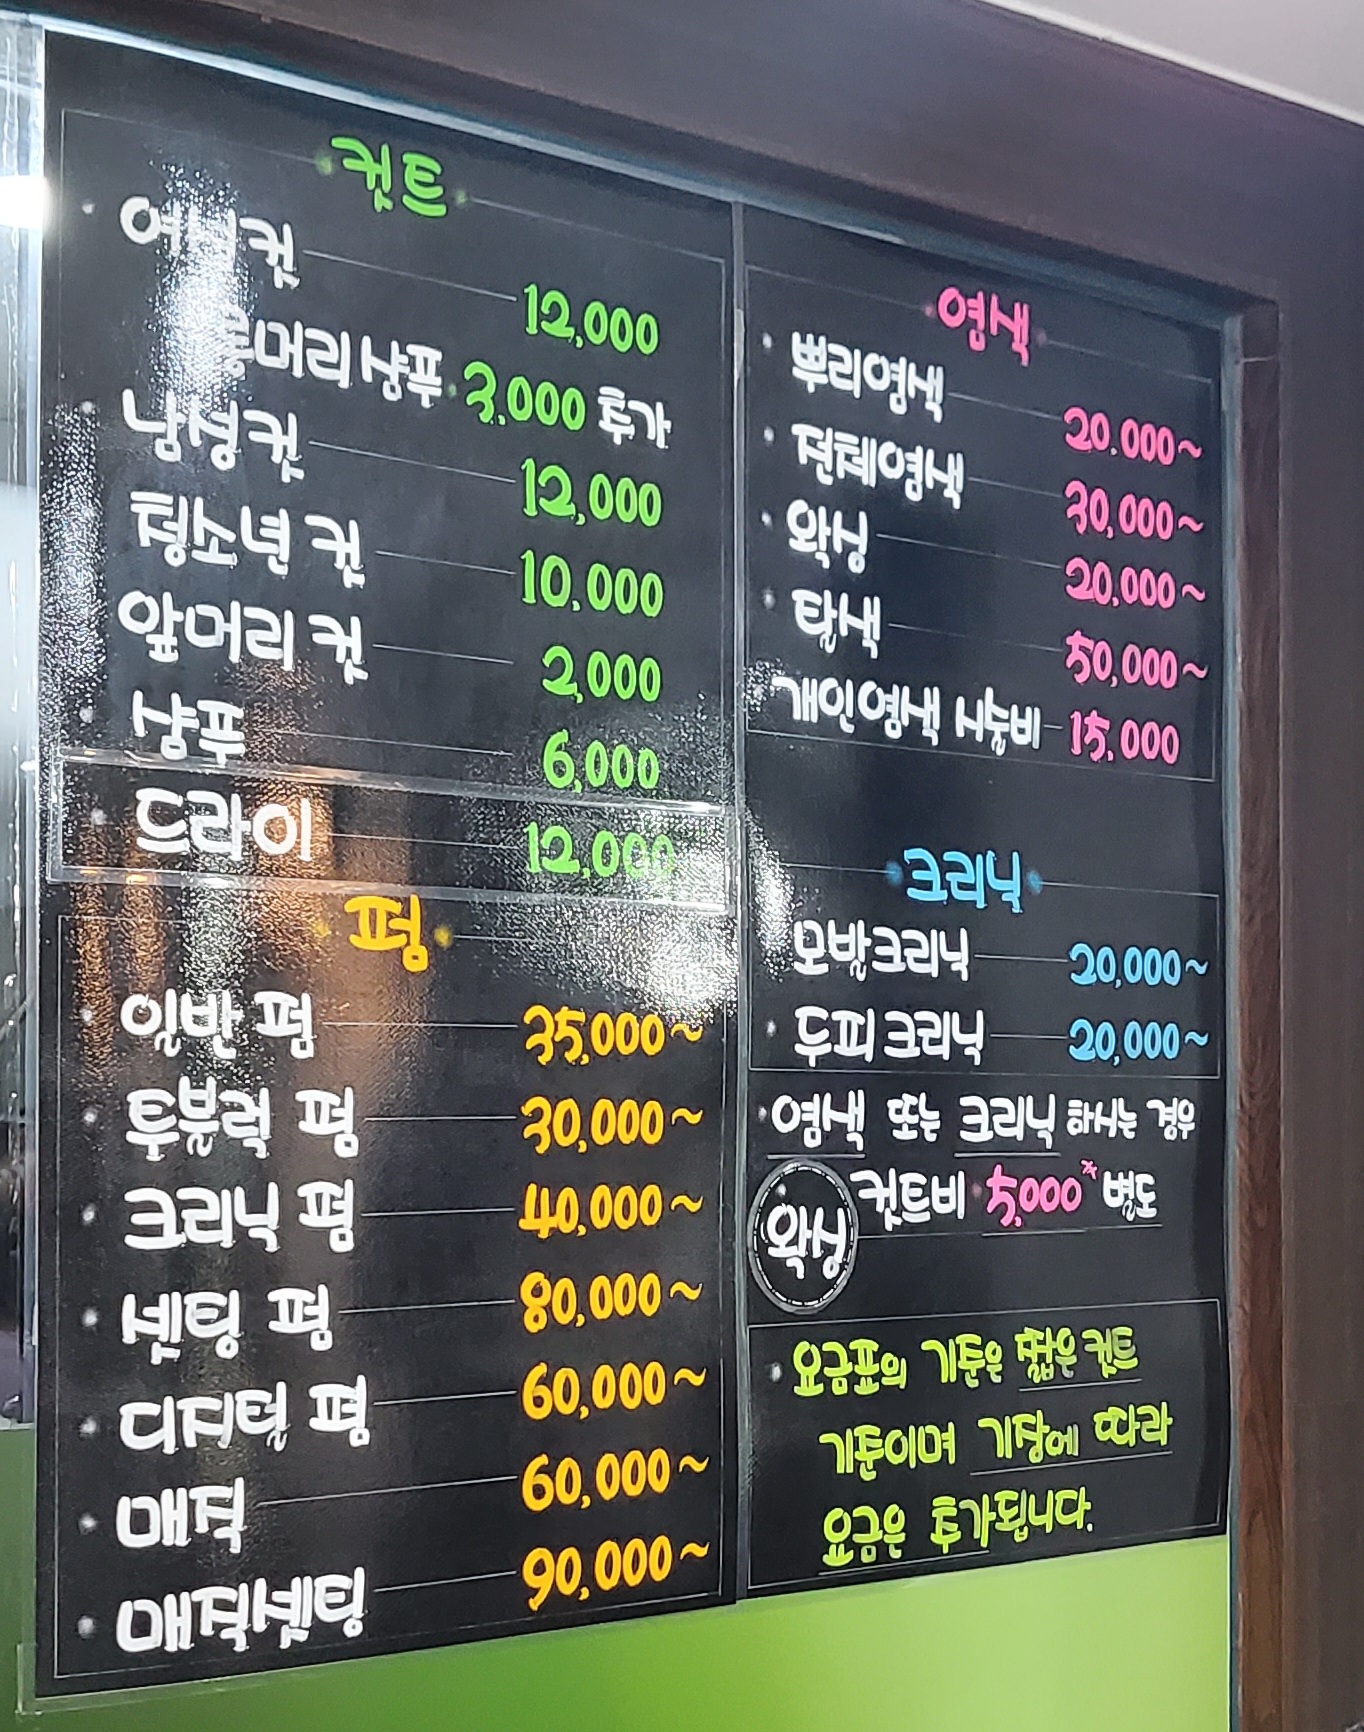 컷트
여성컷 12,000
롱머리샴푸 3,000 추가
남성컷 12,000
청소년 컷 10,000
앞머리 컷 2,000
샴푸 6,000
드라이 12,000
펌
일반 펌 35,000~
투블럭 펌 30,000~
크리닉 펌 40,000~
셋팅 펌 80,000~
디지털 펌 60,000~
매직 60,000~
매직셋팅 90,000~
염색
뿌리염색 20,000~
전체염색 30,000~
왁싱 20,000~
탈색 50,000~
개인염색 시술비 15,000
크리닉
모발크리닉 20,000~
두피 크리닉 20,000~
염색 또는 크리닉 하시는 경우
컷트비 5,000 별도
왁싱
요금표의 기준은 짧은 컷트
기준이며 기장에 따라
요금은 추가됩니다.